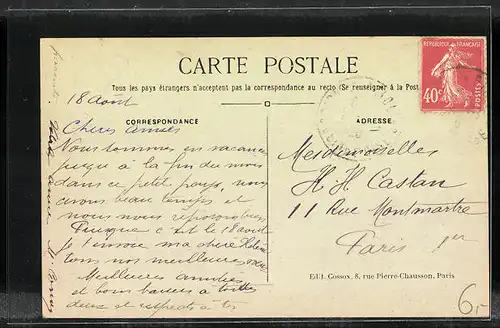 CARTE POSTALE
Tous les pays étrangers n'acceptent pas la correspondance au recto (Se renseigner à la Post
RÉPUBLIQUE FRANÇAISE
40c
POSTES
CORRESPONDANCE
ADRESSE
18 août
Chères amies
Nous sommes en vacances
jusqu'à la fin du mois
dans ce petit pays, nous
avons beau temps et
nous nous reposons bien
Puisque c'est le 18 août
j'envoie ma chère Hélène
tous nos meilleurs
Meilleures amitiés
et bons baisers à toutes
deux et respects à
Mesdemoiselles
H H Castan
11 Rue Montmartre
Paris 1er
Edit. Gosson, 8, rue Pierre-Chausson, Paris
6,-